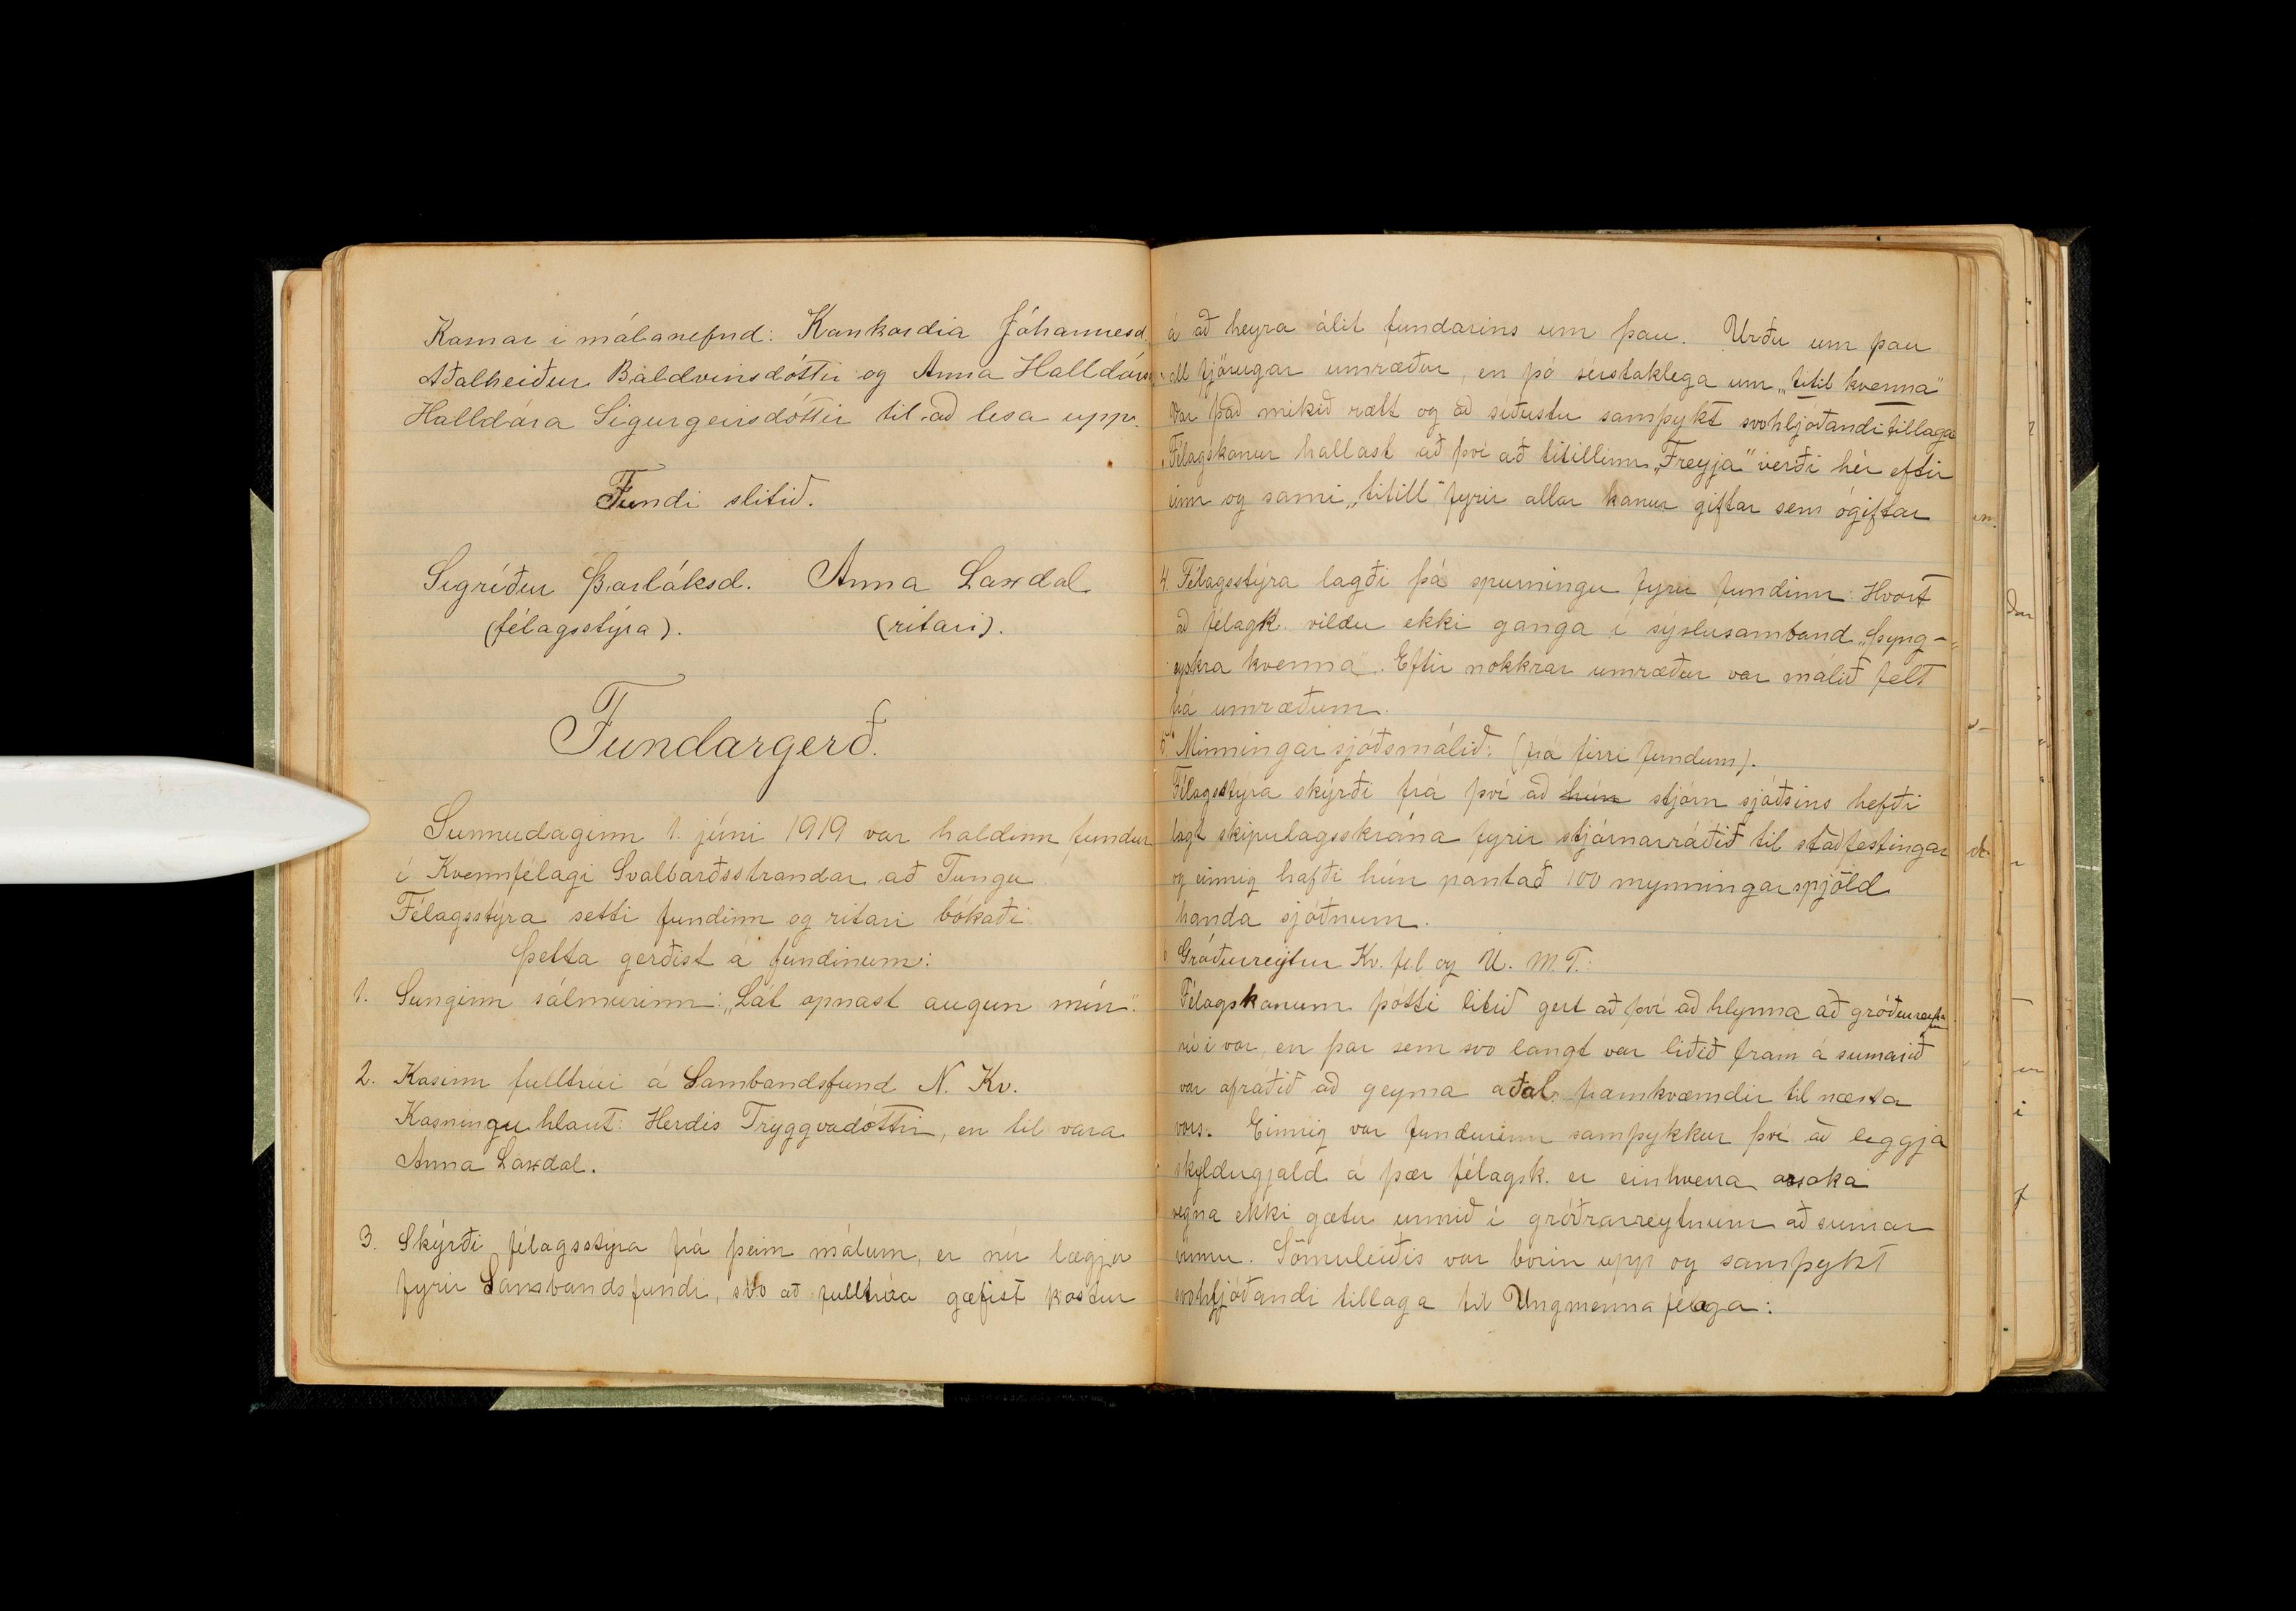 Kosnar í málanefnd: Konkordia Jóhannesd.
Aðalheiður Baldvinsdóttir og Anna Halldórsd.
Halldóra Sigurgeirsdóttir til að lesa upp.
Fundi slitið.
Sigríður Þorláksd. Anna Laxdal
(félagsstýra). (ritari).
Fundargerð.
Sunnudaginn 1. júní 1919 var haldinn fundur
í Kvennfélagi Svalbarðsstrandar að Tungu.
Félagsstýra setti fundinn og ritari bókaði
Þetta gerðist á fundinum:
1. Sunginn sálmurinn: „Lát opnast augun mín".
2. Kosinn fulltrúi á Sambandsfund N. Kv.
Kosningu hlaut: Herdís Tryggvadóttir, en til vara
Anna Laxdal.
3. Skýrði félagsstýra frá þeim málum, er nú lægju
fyrir Sambandsfundi, svo að fulltrúa gæfist kostur
á að heyra álit fundarins um þau. Urðu um þau
öll fjörugar umræður, en þó sérstaklega um „titil kvenna"
Var það mikið rætt og að síðustu samþykt svohljóðandi tillaga
Félagskonur hallast að því að titillinn „Freyja" verði hér eftir
einn og sami „titill" fyrir allar konur giftar sem ógiftar
4. Félagsstýra lagði þá spurningu fyrir fundinn: Hvort
að félagk. vildu ekki ganga í sýslusamband „Þyng-
eyskra kvenna". Eftir nokkrar umræður var málið felt
frá umræðum.
5. Minningarsjóðsmálið: (frá firri fundum).
Félagsstýra skýrði frá því að hún stjórn sjóðsins hefði
lagt skipulagsskrána fyrir stjórnarráðið til staðfestingar
og einnig hafði hún pantað 100 mynningarspjöld
handa sjóðnum.
6. Gróðurreitur Kv. fél og U. M. F.:
Félagskonum þótti lítið gert að því að hlynna að gróðurreit
nú í vor, en þar sem svo langt var liðið fram á sumarið
var afráðið að geyma aðal framkvæmdir til næsta
vors. Einnig var fundurinn samþykkur því að leggja
skyldugjald á þær félagsk. er einhverra orsaka
vegna ekki gætu unnið í gróðrarreytnum að sumar
innu. Sömuleiðis var borin upp og samþykt
svohljóðandi tillaga til Ungmennafélaga: